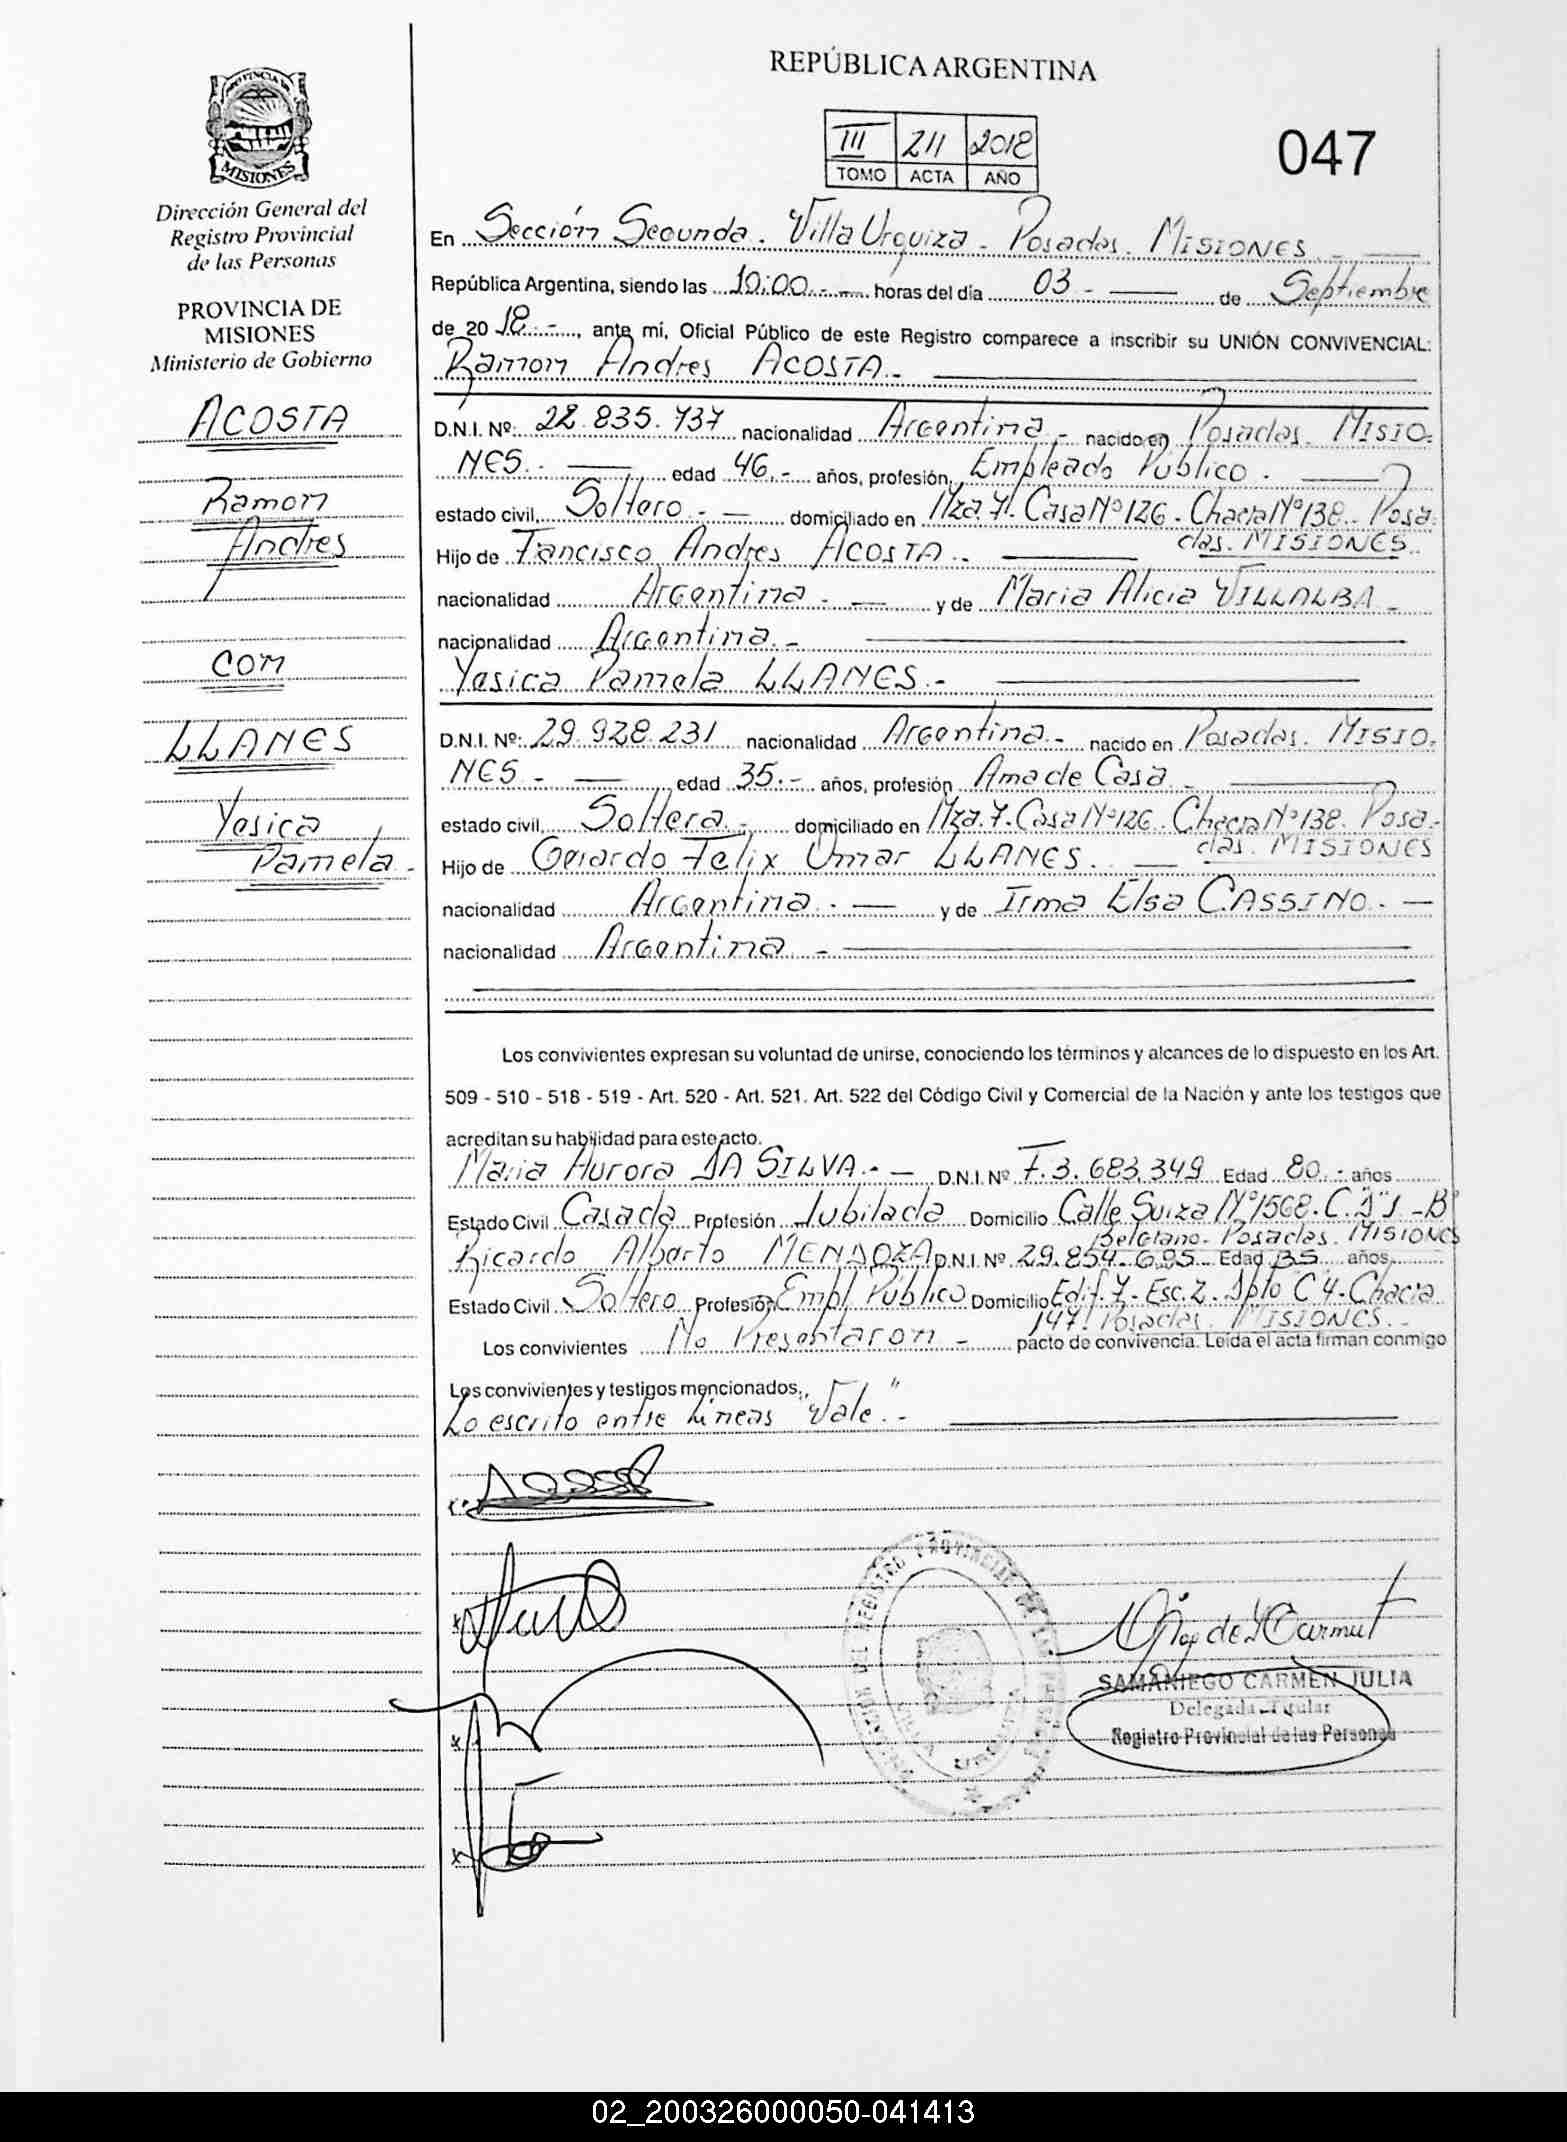 REPÚBLICA ARGENTINA
III 211 2018
TOMO ACTA AÑO
047
PROVINCIA DE
MISIONES
Dirección General del
Registro Provincial
de las Personas
PROVINCIA DE
MISIONES
Ministerio de Gobierno
ACOSTA
Ramon
Andres
con
LLANES
Yesica
Pamela.-
En Sección Segunda. Villa Urquiza - Posadas. MISIONES.
República Argentina, siendo las 10:00.- horas del día 03 - de Septiembre
de 20 18.-, ante mí, Oficial Público de este Registro comparece a inscribir su UNIÓN CONVIVENCIAL:
Ramon Andres ACOSTA.-
D.N.I. Nº: 22.835.737 nacionalidad Argentina.- nacido en Posadas. MISIO-
NES.- edad 46.- años, profesión Empleado Público.
estado civil Soltero.- domiciliado en Mza. 7. Casa Nº 126. Chacra Nº 138. Posa-
das. MISIONES.
Hijo de Francisco Andres ACOSTA.-
nacionalidad Argentina.- y de Maria Alicia VILLALBA.-
nacionalidad Argentina.-
Yesica Pamela LLANES.-
D.N.I. Nº: 29.928.231 nacionalidad Argentina.- nacido en Posadas. MISIO-
NES.- edad 35.- años, profesión Ama de Casa.
estado civil Soltera.- domiciliado en Mza. 7. Casa Nº 126. Chacra Nº 138. Posa-
das. MISIONES
Hijo de Gerardo Felix Omar LLANES.
nacionalidad Argentina.- y de Irma Elsa CASSINO.-
nacionalidad Argentina.-
Los convivientes expresan su voluntad de unirse, conociendo los términos y alcances de lo dispuesto en los Art.
509 - 510 - 518 - 519 - Art. 520 - Art. 521. Art. 522 del Código Civil y Comercial de la Nación y ante los testigos que
acreditan su habilidad para este acto.
Maria Aurora DA SILVA.- D.N.I. Nº F.3.683.349 Edad 80.- años
Estado Civil Casada Profesión Jubilada Domicilio Calle Suiza Nº 1568. Bº
Belgrano. Posadas. MISIONES
Ricardo Alberto MENDOZA D.N.I. Nº 29.854.695 Edad 35 años
Estado Civil Soltero Profesión Empl. Público Domicilio Edif. 7- Esc. 2. Dpto C 4- Chacra
147. Posadas. MISIONES.-
Los convivientes No Presentaron - pacto de convivencia. Leída el acta firman conmigo
Los convivientes y testigos mencionados.
Lo escrito entre Líneas "Vale".-
REGISTRO PROVINCIAL DE LAS
SAMANIEGO CARMEN JULIA
Delegada Titular
Registro Provincial de las Personas
02_200326000050-041413